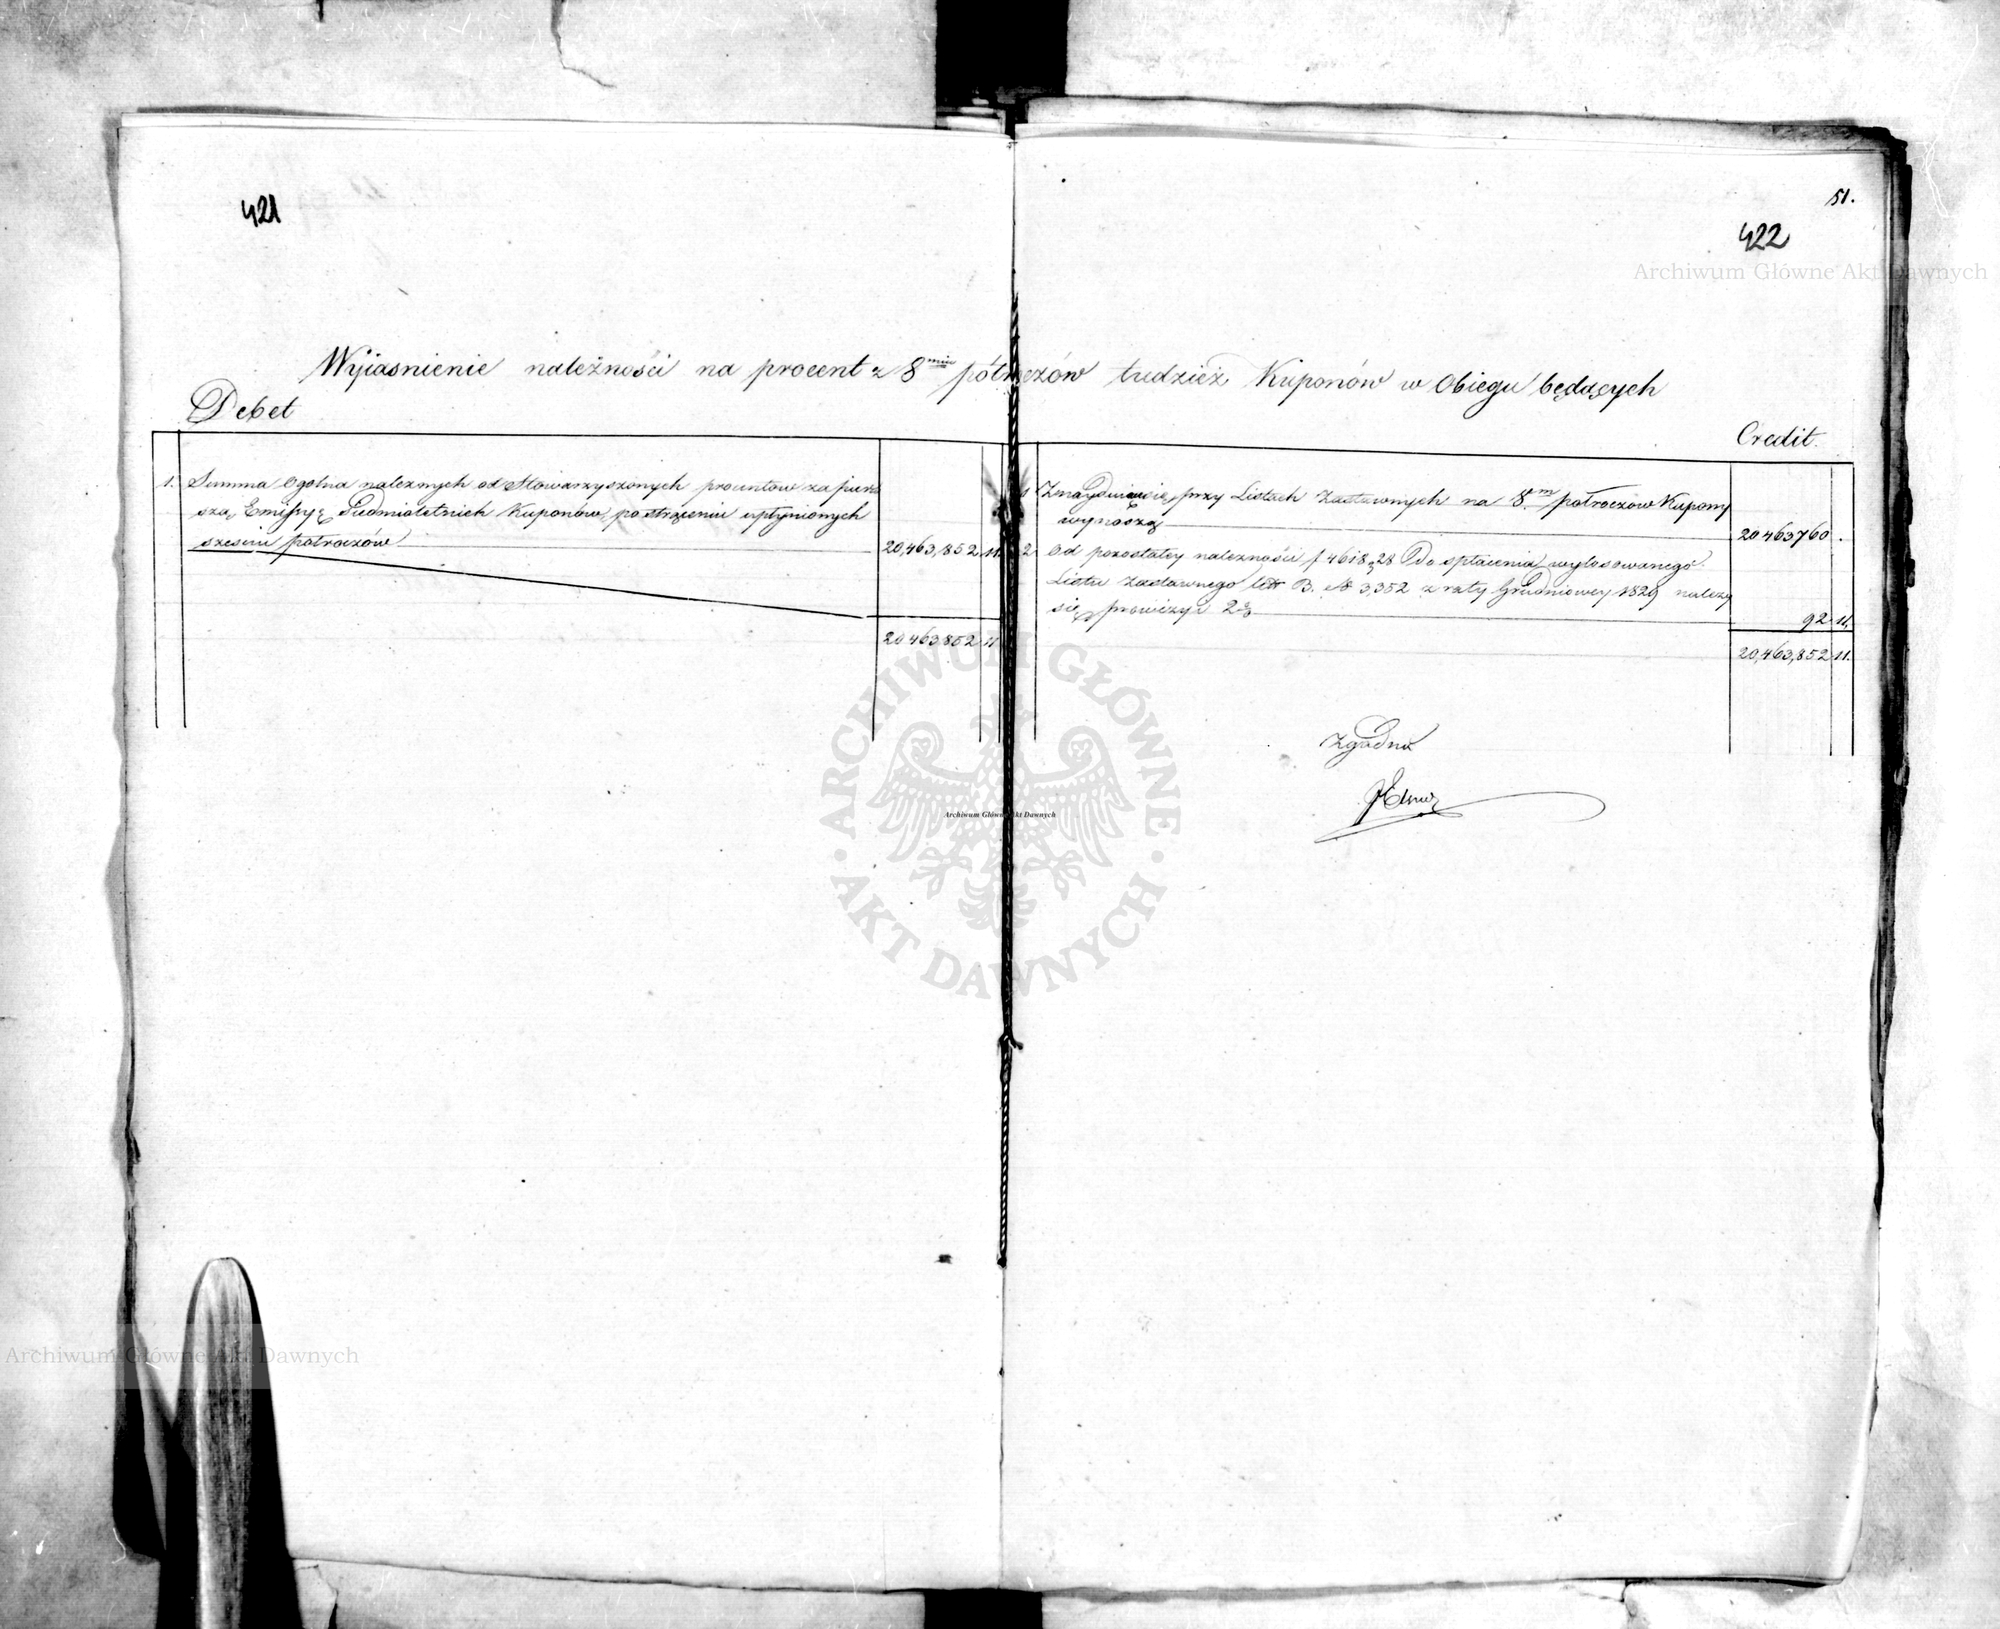 421
51.
422
Archiwum Główne Akt Dawnych
Wyiasnienie należności na procent z 8miu półroczów tudzież Kuponów w Obiegu będących
Debet
Credit.
1. Summa Ogolna należnych od Stowarzyszonych procentow za pierw
szą Emissyę Siedmioletnich Kuponów, po strąceniu upłynionych
sześciu półroczów 20,463,852 11.
20 463,852 11
1 Znayduiące się przy Listach Zastawnych na 8m półroczów Kupony
wynoszą 20 463760 .
2. Od pozostałey należności f 4618 28 Do spłacenia wylosowanego
Listu Zastawnego littr B. No 3,352 z raty Grudniowey 1829 należy
się prowizyi 92 11.
20,463,852 11.
Zgodno
ARCHIWUM GŁÓWNE AKT DAWNYCH
Archiwum Główne Akt Dawnych
Archiwum Główne Akt Dawnych